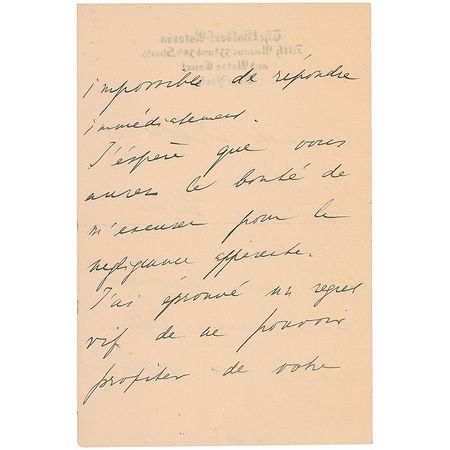 The Waldorf-Astoria
Fifth Avenue 33rd and 34th Streets
and Astor Court
impossible de répondre
immédiatement.
J'éspère que vous
aurez le bonté de
m'excuser pour le
negligence apparente.
J'ai éprouvé un regret
vif de ne pouvoir
profiter de votre